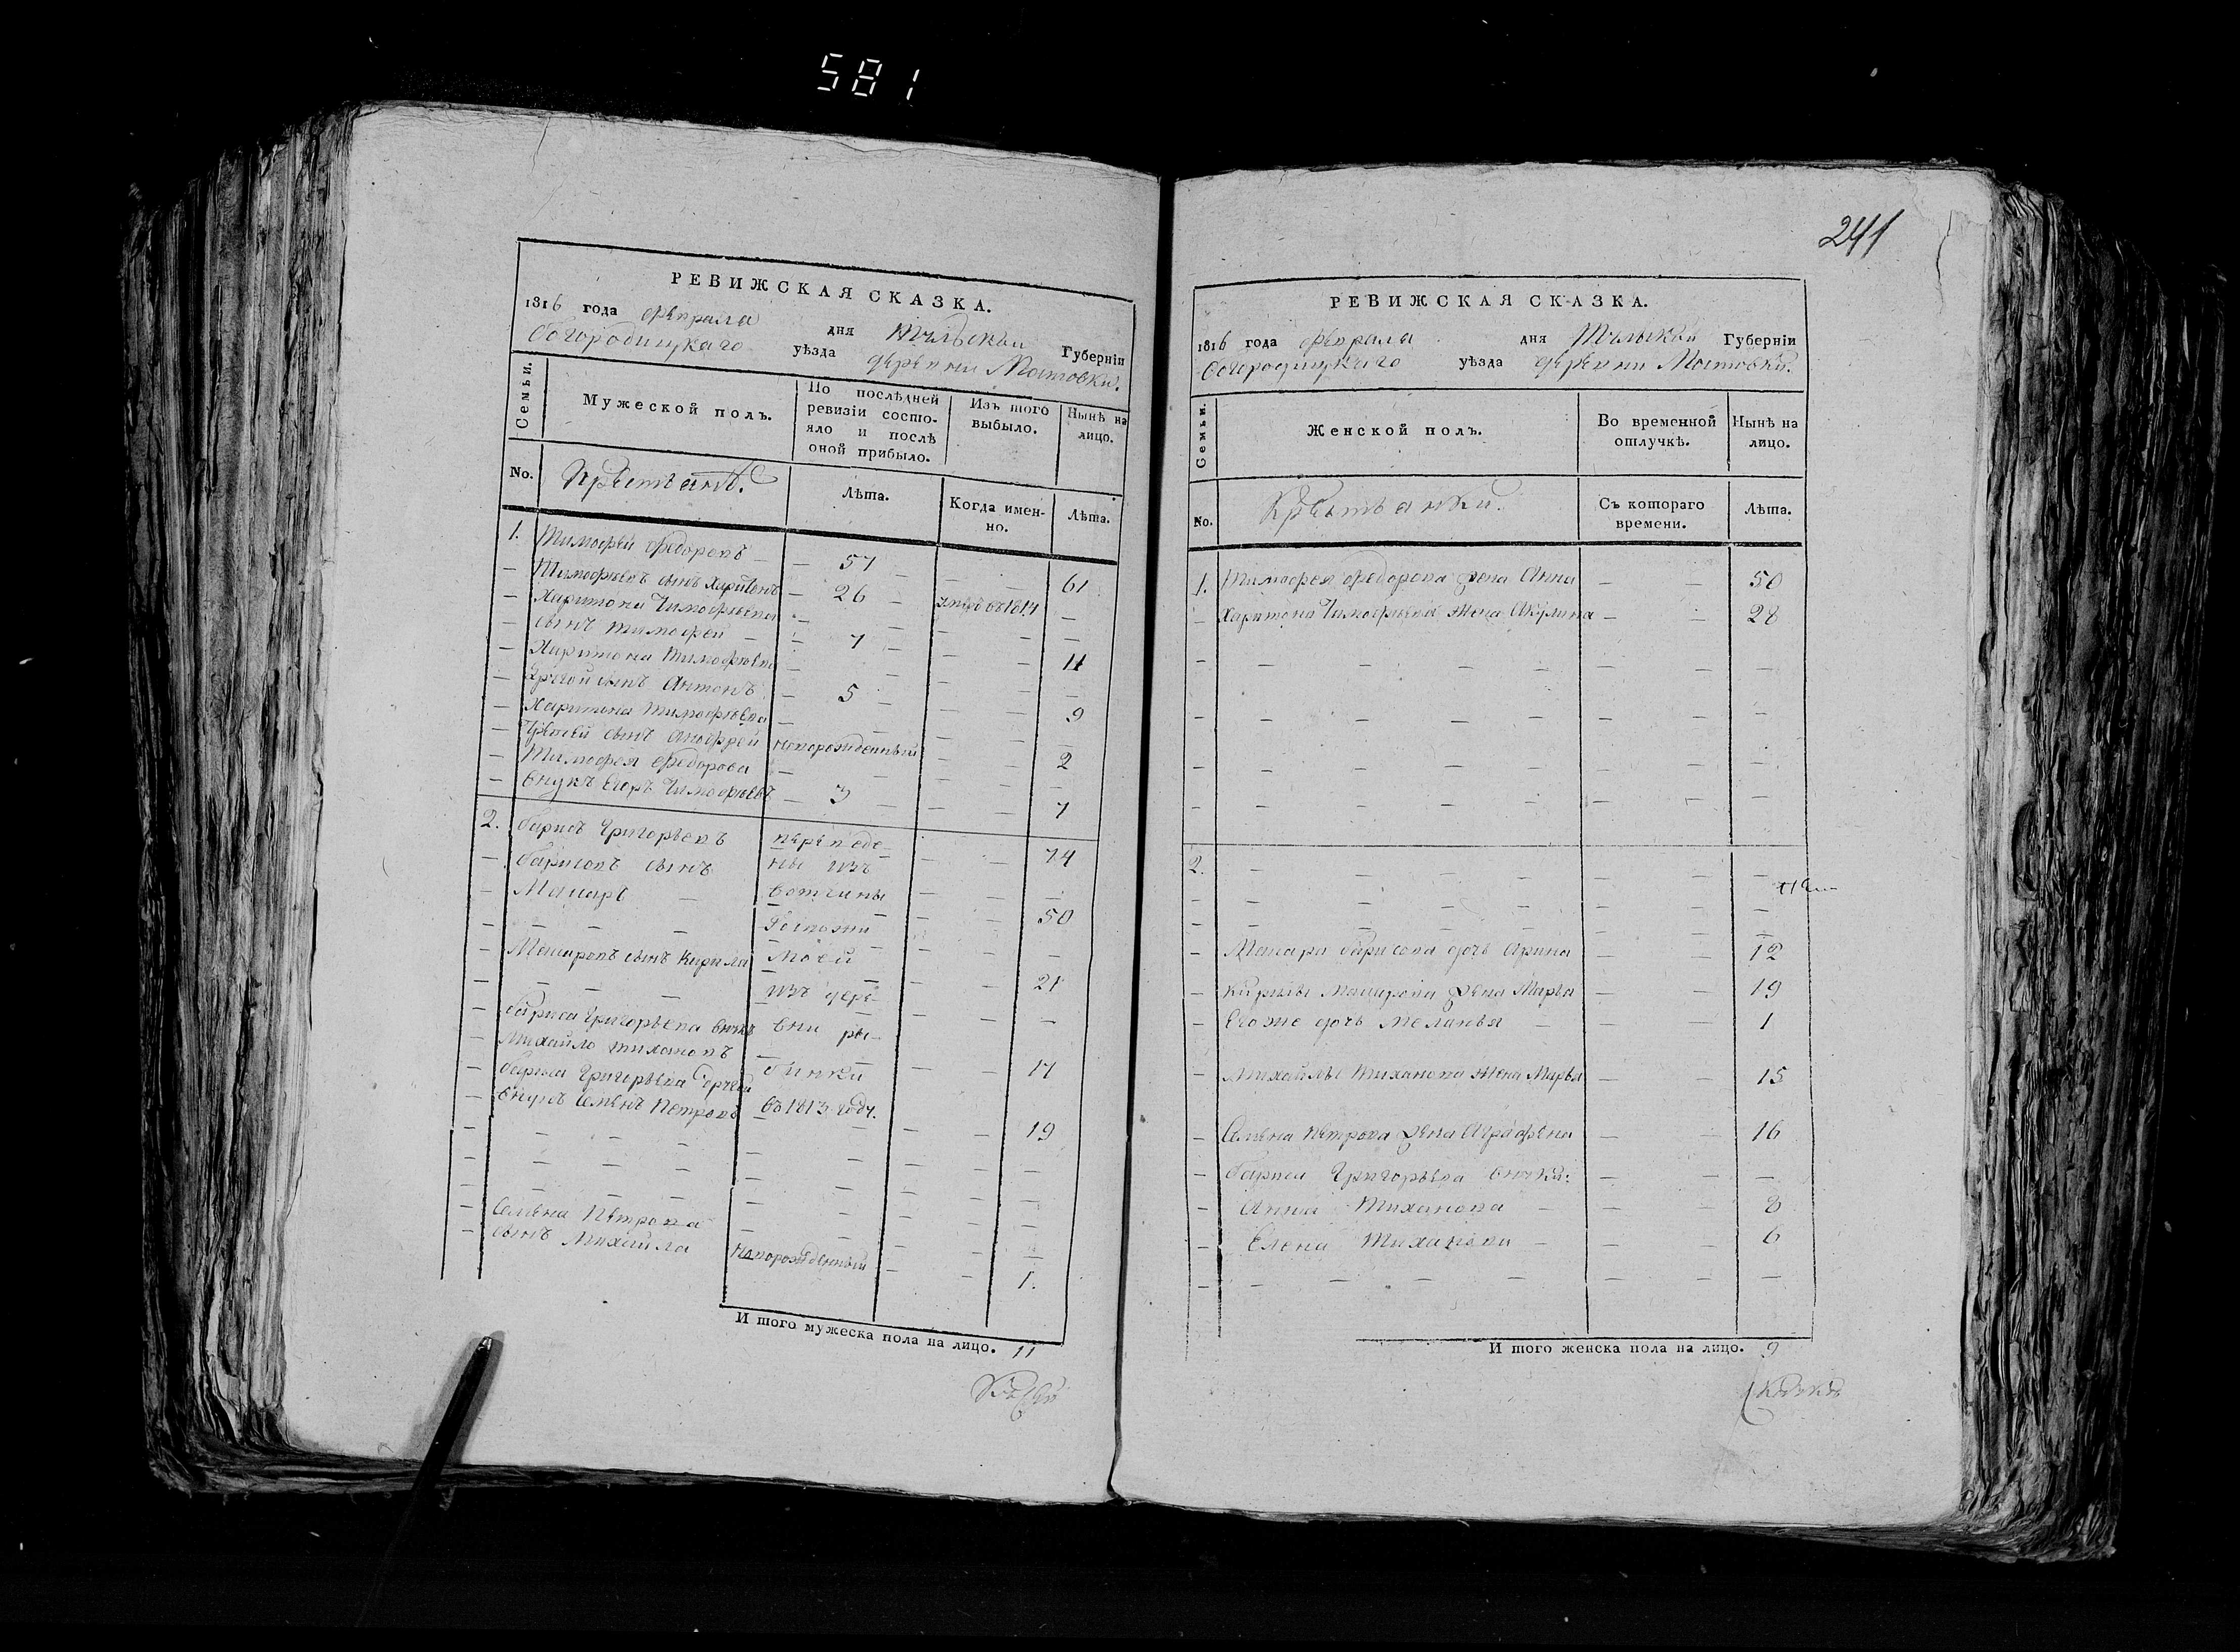 581
РЕВИЖСКАЯ СКАЗКА.
1816 года февраля дня Тульской Губерніи
Богородицкаго уѣзда деревни Мостовки.
Семьи.
Мужеской полъ.
По послѣдней ревизіи состо-
яло и послѣ
оной прибыло.
Изъ того
выбыло.
Нынѣ на
лицо.
No.
Крестьянѣ.
Лѣта.
Когда имен-
но.
Лѣта.
1. Тимофей Федоровъ — 57 — 61
Тимофѣевъ сынъ Харитонъ — 26 — умре въ 1814
Харитона Тимофѣева
сынъ Тимофей — 7 — 11
Харитона Тимофѣева
другой сынъ Антонъ — 5 — 9
Харитона Тимофѣева
третей сынъ новорожденный 2
Тимофея Федорова
внукъ Егоръ Тимофѣевъ — 3 — 7
2. Борисъ Григорьевъ переведе- 74
Борисовъ сынъ ны изъ
Макаръ вотчины
госпожи 50
Макаровъ сынъ Кирила моей
изъ дере- 21
Бориса Григорьева внукъ вни
Михайло Тихоновъ
Бориса Григорьева другой 17
внукъ Семенъ Петровъ въ 1813 году.
19
Семена Петрова
сынъ Михайла новорожденный 1.
И того мужеска пола на лицо. 11
241
РЕВИЖСКАЯ СКАЗКА.
1816 года февраля дня Тульской Губерніи
Богородицкаго уѣзда деревни Мостовки.
Семьи.
Женской полъ.
Во временной
отлучкѣ.
Нынѣ на
лицо.
No.
Крестьянки.
Съ котораго
времени.
Лѣта.
1. Тимофея Федорова жена Анна — — 50
Харитона Тимофѣева жена Акулина — — 28
2.
Макара Борисова дочь Арина — — 12
Кирилы Макарова жена Марья — — 19
Егоже дочь Меланья — — 1
Михайлы Тихонова жена Марья — — 15
Семена Петрова жена Аграфена — — 16
Бориса Григорьева внучки: — — —
Анна Тиханова — — 8
Елена Тиханова — — 6
И того женска пола на лицо. 9